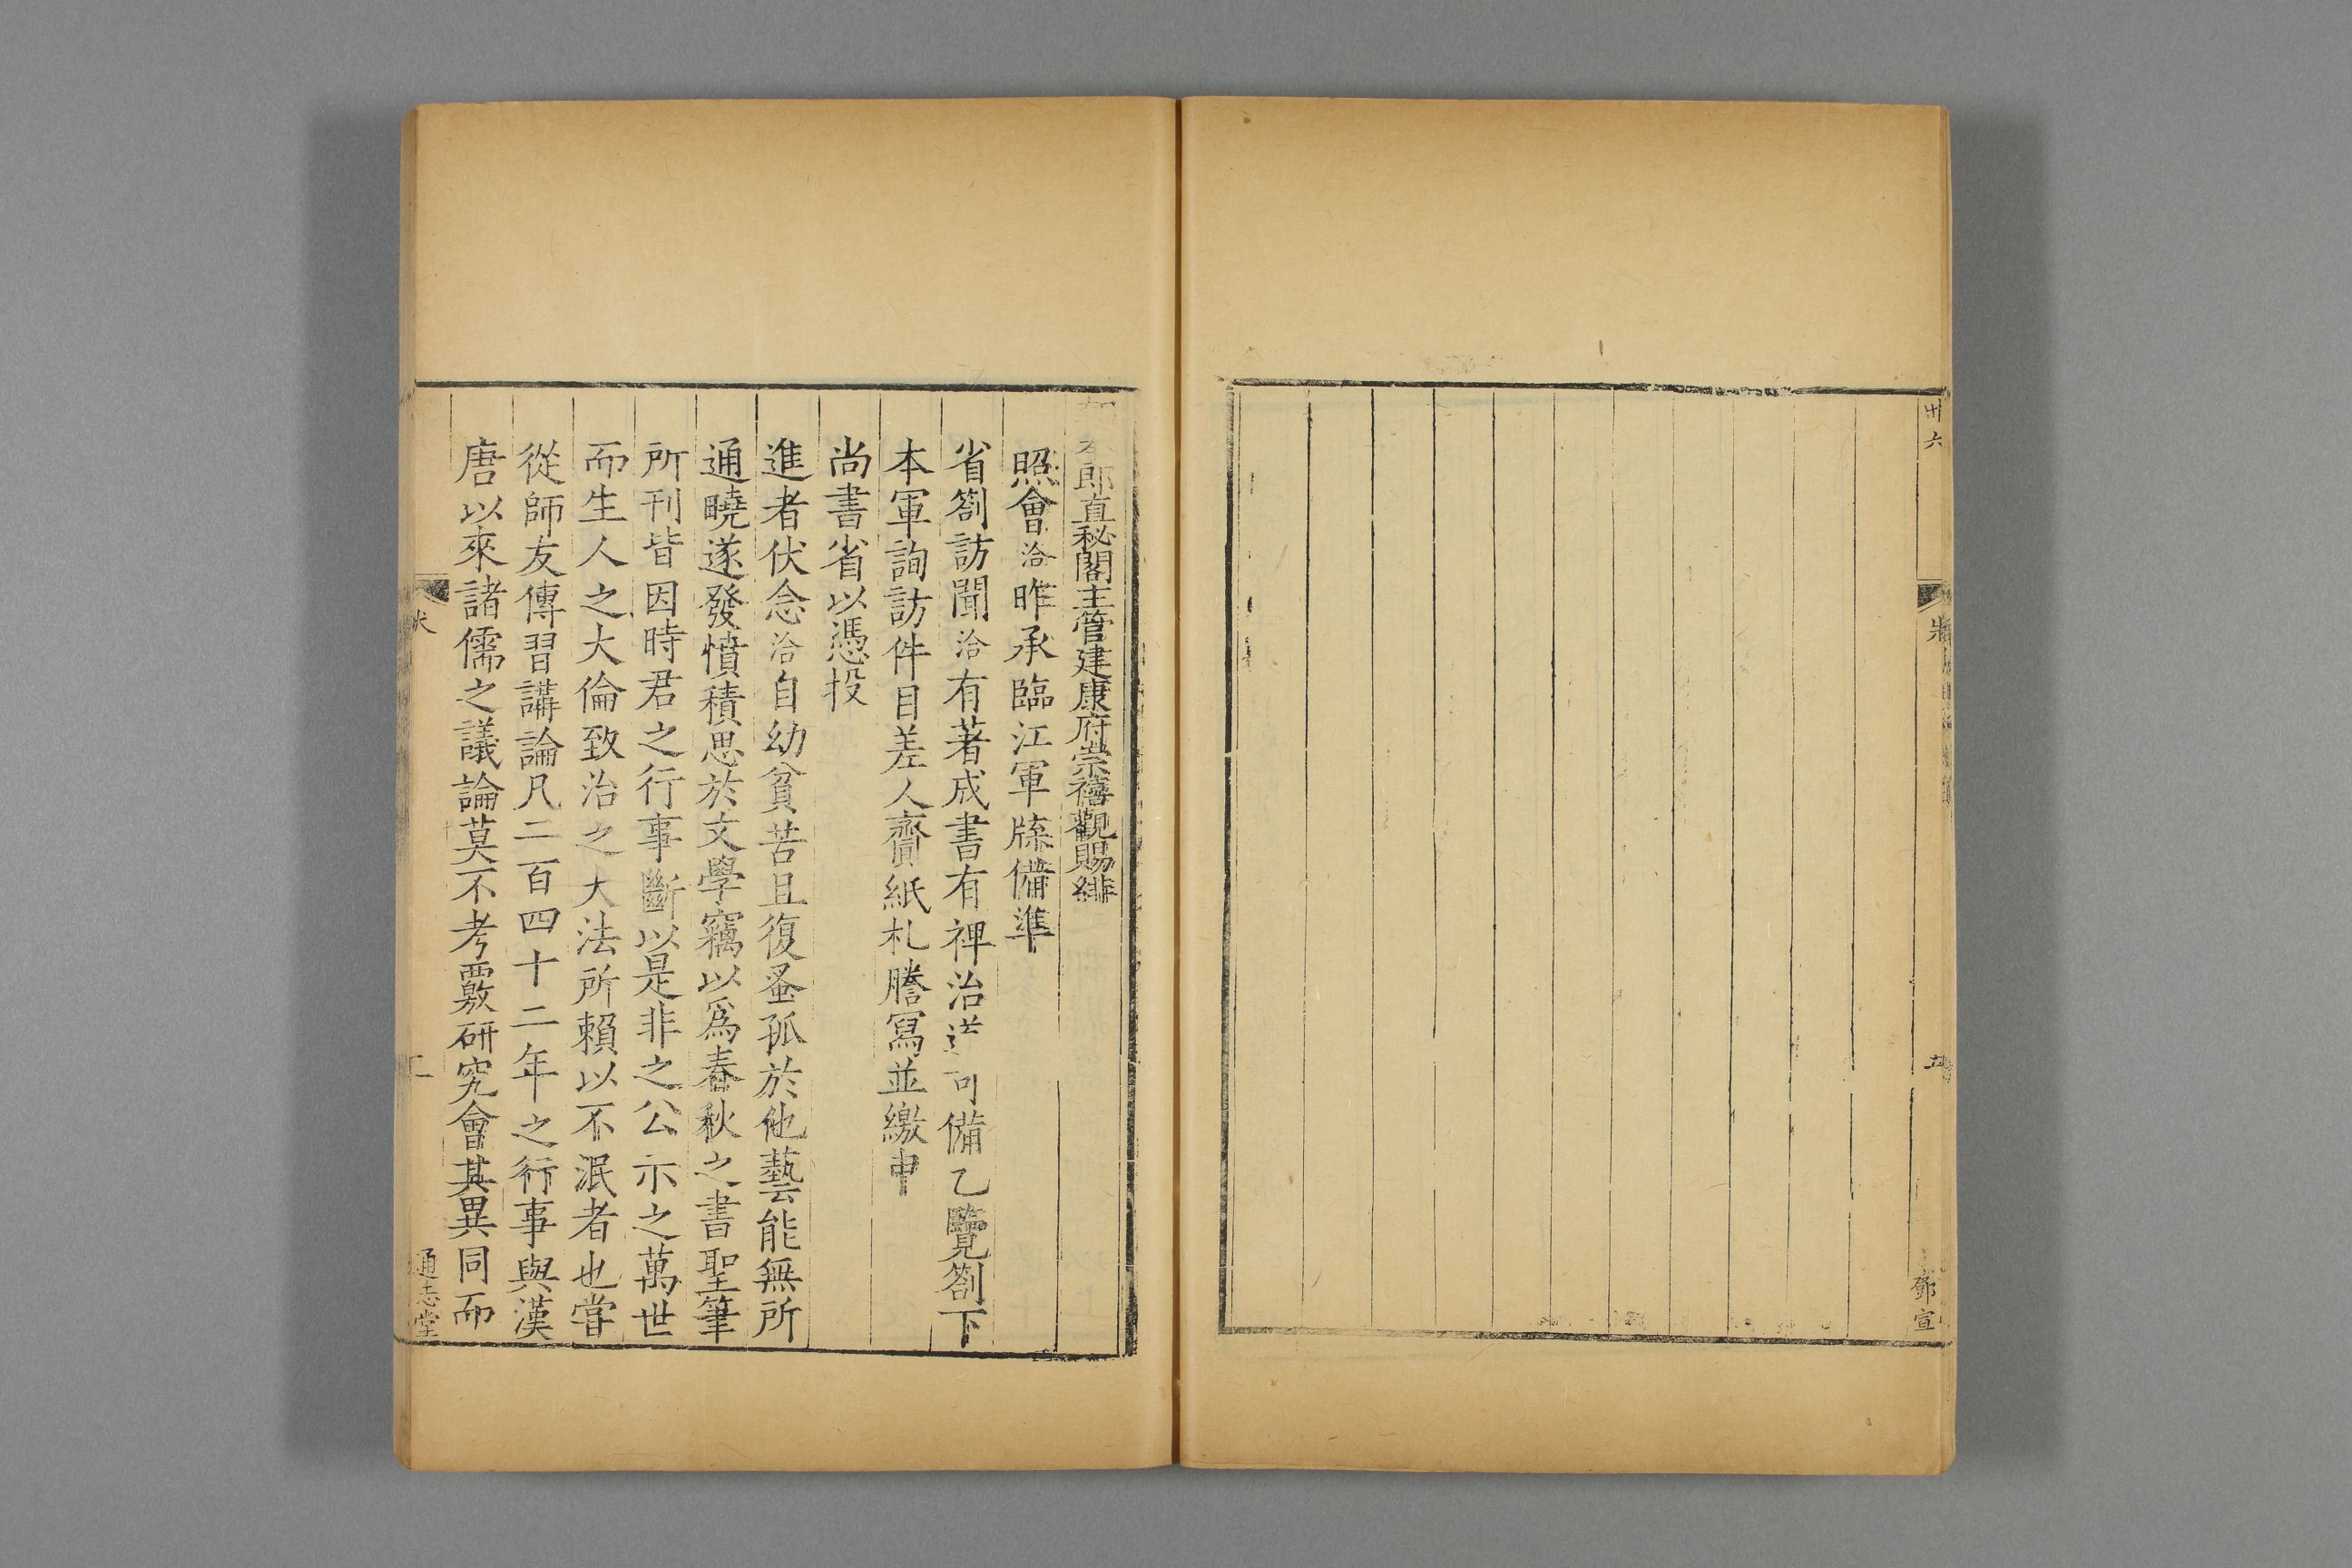 卅六
五
鄧宣
郎直秘閣主管建康府崇禧觀賜緋
照會洽昨承臨江軍牒備準
省劄訪聞洽有著成書有裨治道可備乙覽劄下
本軍詢訪件目差人齎紙札謄寫並繳申
尚書省以憑投
進者伏念洽自幼貧苦且復蚤孤於他藝能無所
通曉遂發憤積思於文學竊以爲春秋之書聖筆
所刊皆因時君之行事斷以是非之公示之萬世
而生人之大倫致治之大法所賴以不泯者也嘗
從師友傳習講論凡二百四十二年之行事與漢
唐以來諸儒之議論莫不考覈研究會其異同而
通志堂